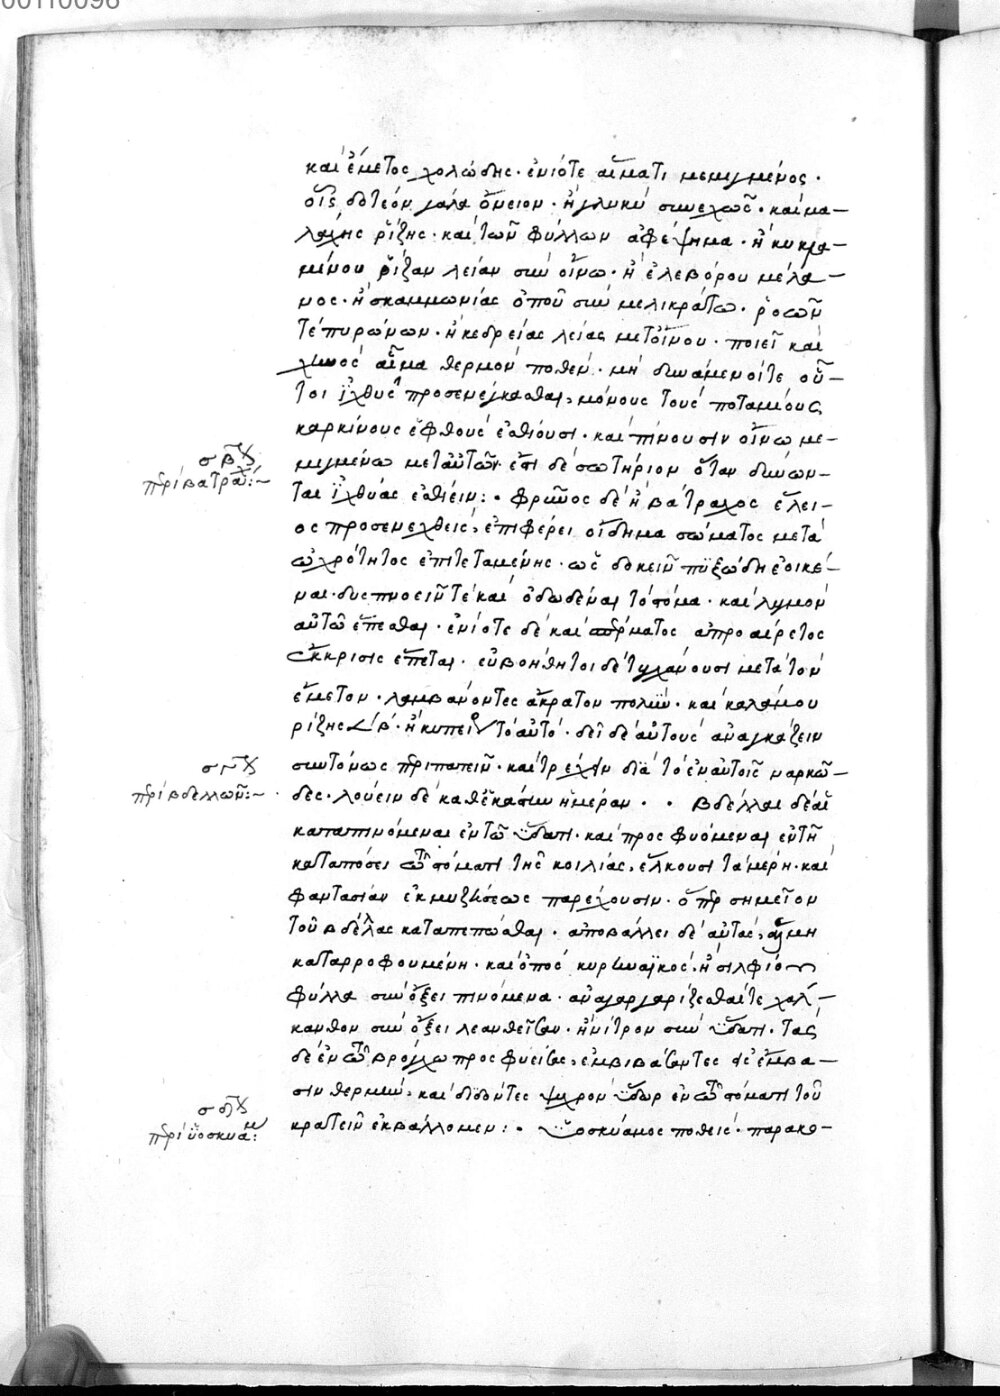 καὶ ἔμετος χολώδης· ἐνίοτε αἵματι μεμιγμένος·
οἷς δοτέον γάλα ὄνειον· ἢ γλυκὺ συνεχῶς· καὶ μα-
λάχης ῥίζης· καὶ τῶν φύλλων ἀφέψημα· ἢ κυκλα-
μίνου ῥίζαν λείαν σὺν οἴνω· ἢ ἐλεβόρου μέλα-
νος· ἢ σκαμμωνίας ὀποῦ σὺν μελικράτω· ῥοῶν
τε πυρώνων· ἢ κεδρείας λείας μετοίνου· ποιεῖ καὶ
χηνὸς αἷμα θερμὸν ποθέν· μὴ δυνάμενοί τε οὗ-
τοι ἰχθὺς προσενέγκασθαι, μόνους τοὺς ποταμίους
καρκίνους ἑφθοὺς ἐσθίουσι· καὶ πίνουσιν οἴνω με-
μιγμένω μεταὐτῶν· ἔστι δὲ σωτήριον ὅταν δύνων-
σβον
περὶ βατράχου:~
ται ἰχθύας ἐσθίειν:· φρῦνος δὲ ἢ βάτραχος ἕλει-
ος προσενεχθεὶς, ἐπιφέρει οἴδημα σώματος μετὰ
ὠχρότητος ἐπιτεταμένης· ὡς δοκεῖν πυξώδη ἐοικέ-
ναι· δυσπνοεῖν τὲ καὶ ὀδωδέναι τὸ στόμα· καὶ λυγμὸν
αὐτῶ ἕπεσθαι· ἐνίοτε δὲ καὶ σπέρματος ἀπροαίρετος
ἔκκρισις ἕπεται· εὐβοήθητοι δὲ τυγχάνουσι μετὰ τὸν
ἔμετον· λαμβάνοντες ἄκρατον πολὺν· καὶ καλάμου
ῥίζης < β· ἢ κυπείρου τὸ αὐτό· δεῖ δὲ αὐτοὺς ἀναγκάζειν
συντόνως περιπατεῖν· καὶ τρέχειν διὰ τὸ ἐν αὐτοῖς ναρκῶ-
σγον
περὶ βδελλῶν:~
δες· λούειν δὲ καθεκάστην ἡμέραν· · βδέλλαι δὲ αἱ
καταπινόμεναι ἐν τῶ ὕδατι· καὶ προσφυόμεναι ἐν τῆ
καταπόσει τῶ στόματι τῆς κοιλίας, ἕλκουσι τὰ μέρη· καὶ
φαντασίαν ἐκμυζήσεως παρέχουσιν· ὅπερ σημεῖον
τοῦ βδέλλας καταπεπῶσθαι· ἀποβάλλει δὲ αὐτὰς, ἅλμη
καταρροφουμένη· καὶ ὀπὸς κυρηναϊκὸς, ἢ σιλφίου
φύλλα σὺν ὄξει πινόμενα· ἀναγαργαριζέσθαι τε χάλ-
κανθον σὺν ὄξει λεανθεῖσαν· ἢ νίτρον σὺν ὕδατι· τὰς
δὲ ἐν τῶ βρόγχω προσφυείσας, ἐμβιβάσαντες εἰς ἔμβα-
σιν θερμὴν, καὶ διδόντες ψυχρὸν ὕδωρ ἐν τῶ στόματι τοῦ
σδον
περὶ ὑοσκυάμου:
κρατεῖν ἐκβάλλομεν:· ὑοσκύαμος ποθεὶς· παρακο-